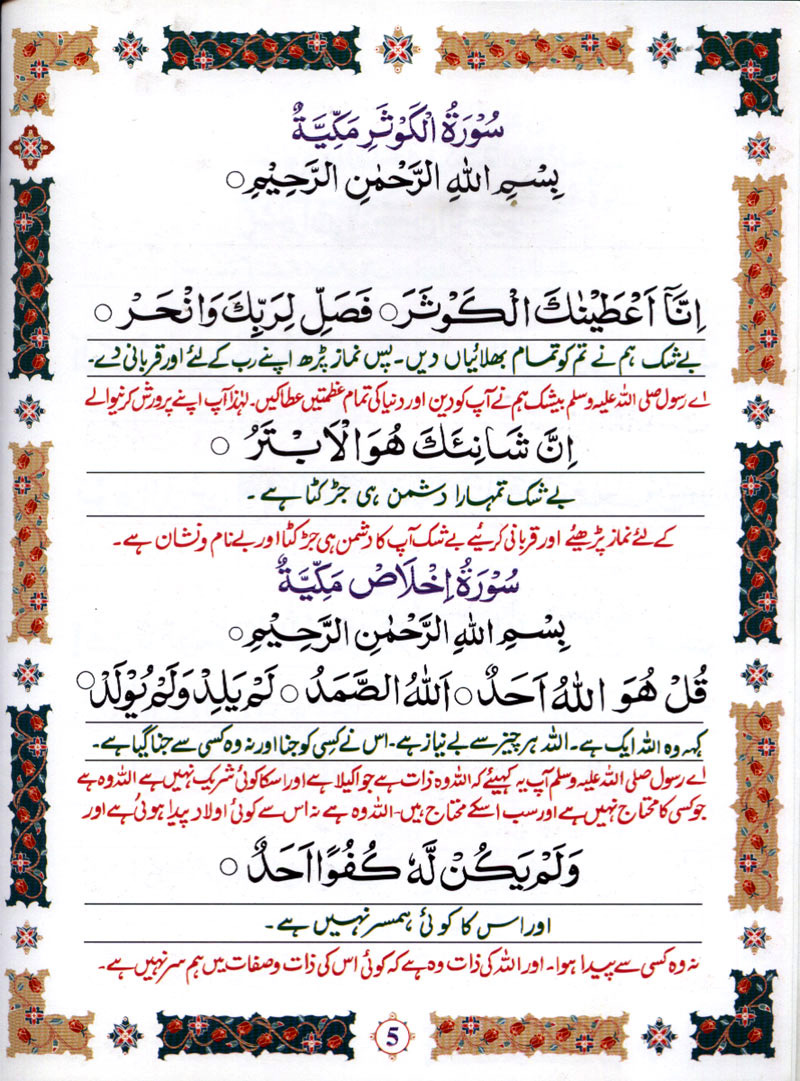 سُوْرَةُ الْكَوْثَرِ مَكِّيَّةٌ
بِسْمِ اللهِ الرَّحْمٰنِ الرَّحِيْمِ○
اِنَّآ اَعْطَيْنٰكَ الْكَوْثَرَ○ فَصَلِّ لِرَبِّكَ وَانْحَرْ○
بے شک ہم نے تم کو تمام بھلائیاں دیں۔ پس نماز پڑھ اپنے رب کے لئے اور قربانی دے۔
اے رسول صلی اللہ علیہ وسلم بیشک ہم نے آپ کو دین اور دنیا کی تمام عظمتیں عطا کیں۔ لہٰذا آپ اپنے پرورش کرنیوالے
اِنَّ شَانِئَكَ هُوَ الْاَبْتَرُ○
بے شک تمہارا دشمن ہی جڑ کٹا ہے۔
کے لئے نماز پڑھیئے اور قربانی کریئے بے شک آپ کا دشمن ہی جڑ کٹا اور بے نام و نشان ہے۔
سُوْرَةُ اِخْلَاصْ مَكِّيَّةٌ
بِسْمِ اللهِ الرَّحْمٰنِ الرَّحِيْمِ○
قُلْ هُوَ اللهُ اَحَدٌ○ اَللهُ الصَّمَدُ○ لَمْ يَلِدْ وَلَمْ يُوْلَدْ○
کہہ وہ اللہ ایک ہے۔ اللہ ہر چیز سے بے نیاز ہے۔ اس نے کسی کو جنا اور نہ وہ کسی سے جنا گیا ہے۔
اے رسول صلی اللہ علیہ وسلم آپ یہ کہیئے کہ اللہ وہ ذات ہے جو اکیلا ہے اور اسکا کوئی شریک نہیں ہے اللہ وہ ہے
جو کسی کا محتاج نہیں ہے اور سب اسکے محتاج ہیں۔ اللہ وہ ہے نہ اس سے کوئی اولاد پیدا ہوئی ہے اور
وَلَمْ يَكُنْ لَّهٗ كُفُوًا اَحَدٌ○
اور اس کا کوئی ہمسر نہیں ہے۔
نہ وہ کسی سے پیدا ہوا۔ اور اللہ کی ذات وہ ہے کہ کوئی اس کی ذات و صفات میں ہم سر نہیں ہے۔
5